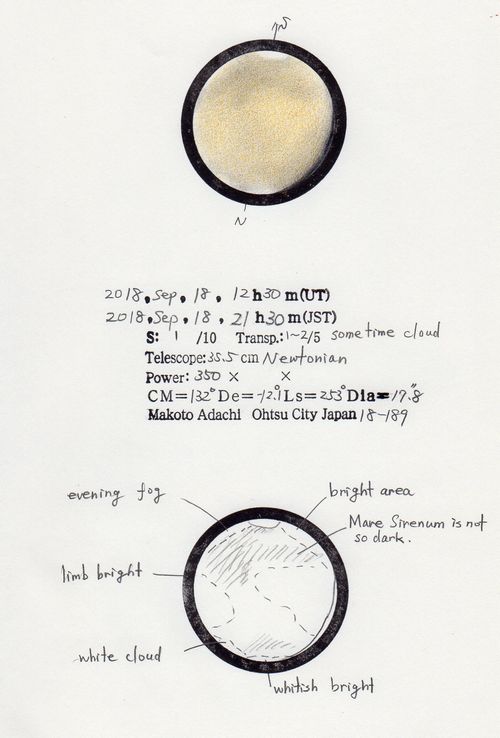 S
N
2018, Sep, 18, 12 h 30 m (UT)
2018, Sep, 18, 21 h 30 m (JST)
S: 1 /10 Transp.: 1~2/5 sometime cloud
Telescope: 35.5 cm Newtonian
Power: 350 × ×
CM=132° De=-12.1° Ls=253° Dia=17."8
Makoto Adachi Ohtsu City Japan 18-189
evening fog
bright area
Mare Sirenum is not
so dark.
limb bright
white cloud
whitish bright